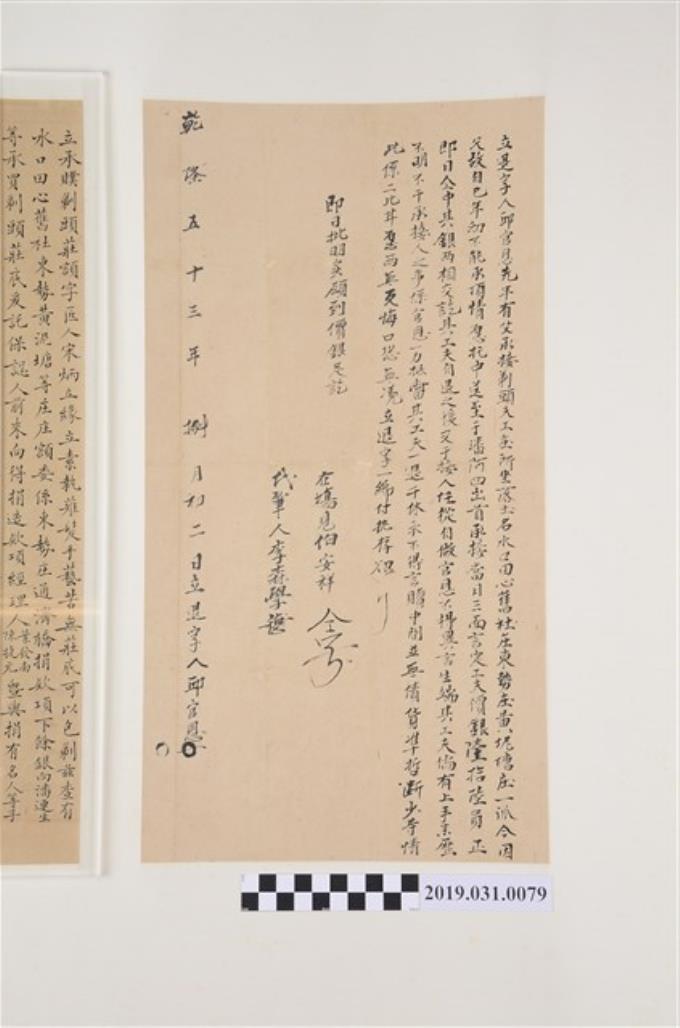 立退字人邱官恩先年有父承接剃頭天工金所坐落土名水口田心舊社庄東勢庄黃坭塘庄一派今因
父故自己年幼不能承頂情愿托中送至于潘阿四出首承接當日三面言定工夫價銀陸拾陸員正
即日仝中其銀兩相交訖其工夫自退之後交于接人任從自做官恩不得異言生端其工夫倘有上手來歷
不明不干承接人之事係官恩一力抵當其工夫一退千休永不得言贖中間並無債貨準折断少等情
此係二比甘愿兩無反悔口恐無憑立退字一紙付執存炤
即日批明實領到價銀足訖
在塲見伯安祥
代筆人李森學
乾隆五十三年捌月初二日立退字人邱官恩
立承贌剃頭莊額字匠人宋炳丘緣立素執薙髮手藝苦無莊底可以包剃茲查有
水口田心舊社東勢黃泥塘等庄庄額委係東勢庄通濟橋捐欵項下餘銀向潘連生
等承買剃頭莊底爰託保認人前來向得捐造欵項經理人葉發南陳捷元暨與捐有名人等手
2019.031.0079